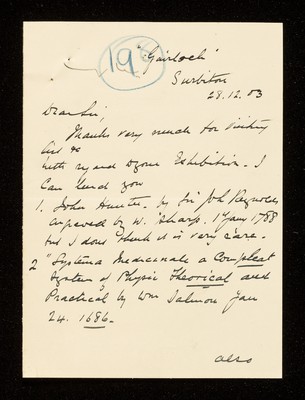 19
"Gairloch"
Surbiton
28.12.03
Dear Sir,
Thanks very much for
List &c
with regard to your Exhibition. I
can lend you
1. John Hunter by Sir Josh Reynolds
engraved by W. Sharp. 1 Jany 1788
but I dont think it is very rare.
2 "Systema Medicinale a Compleat
System of Physic Theorical and
Practical by Wm Salmon Jan
24. 1686.
also